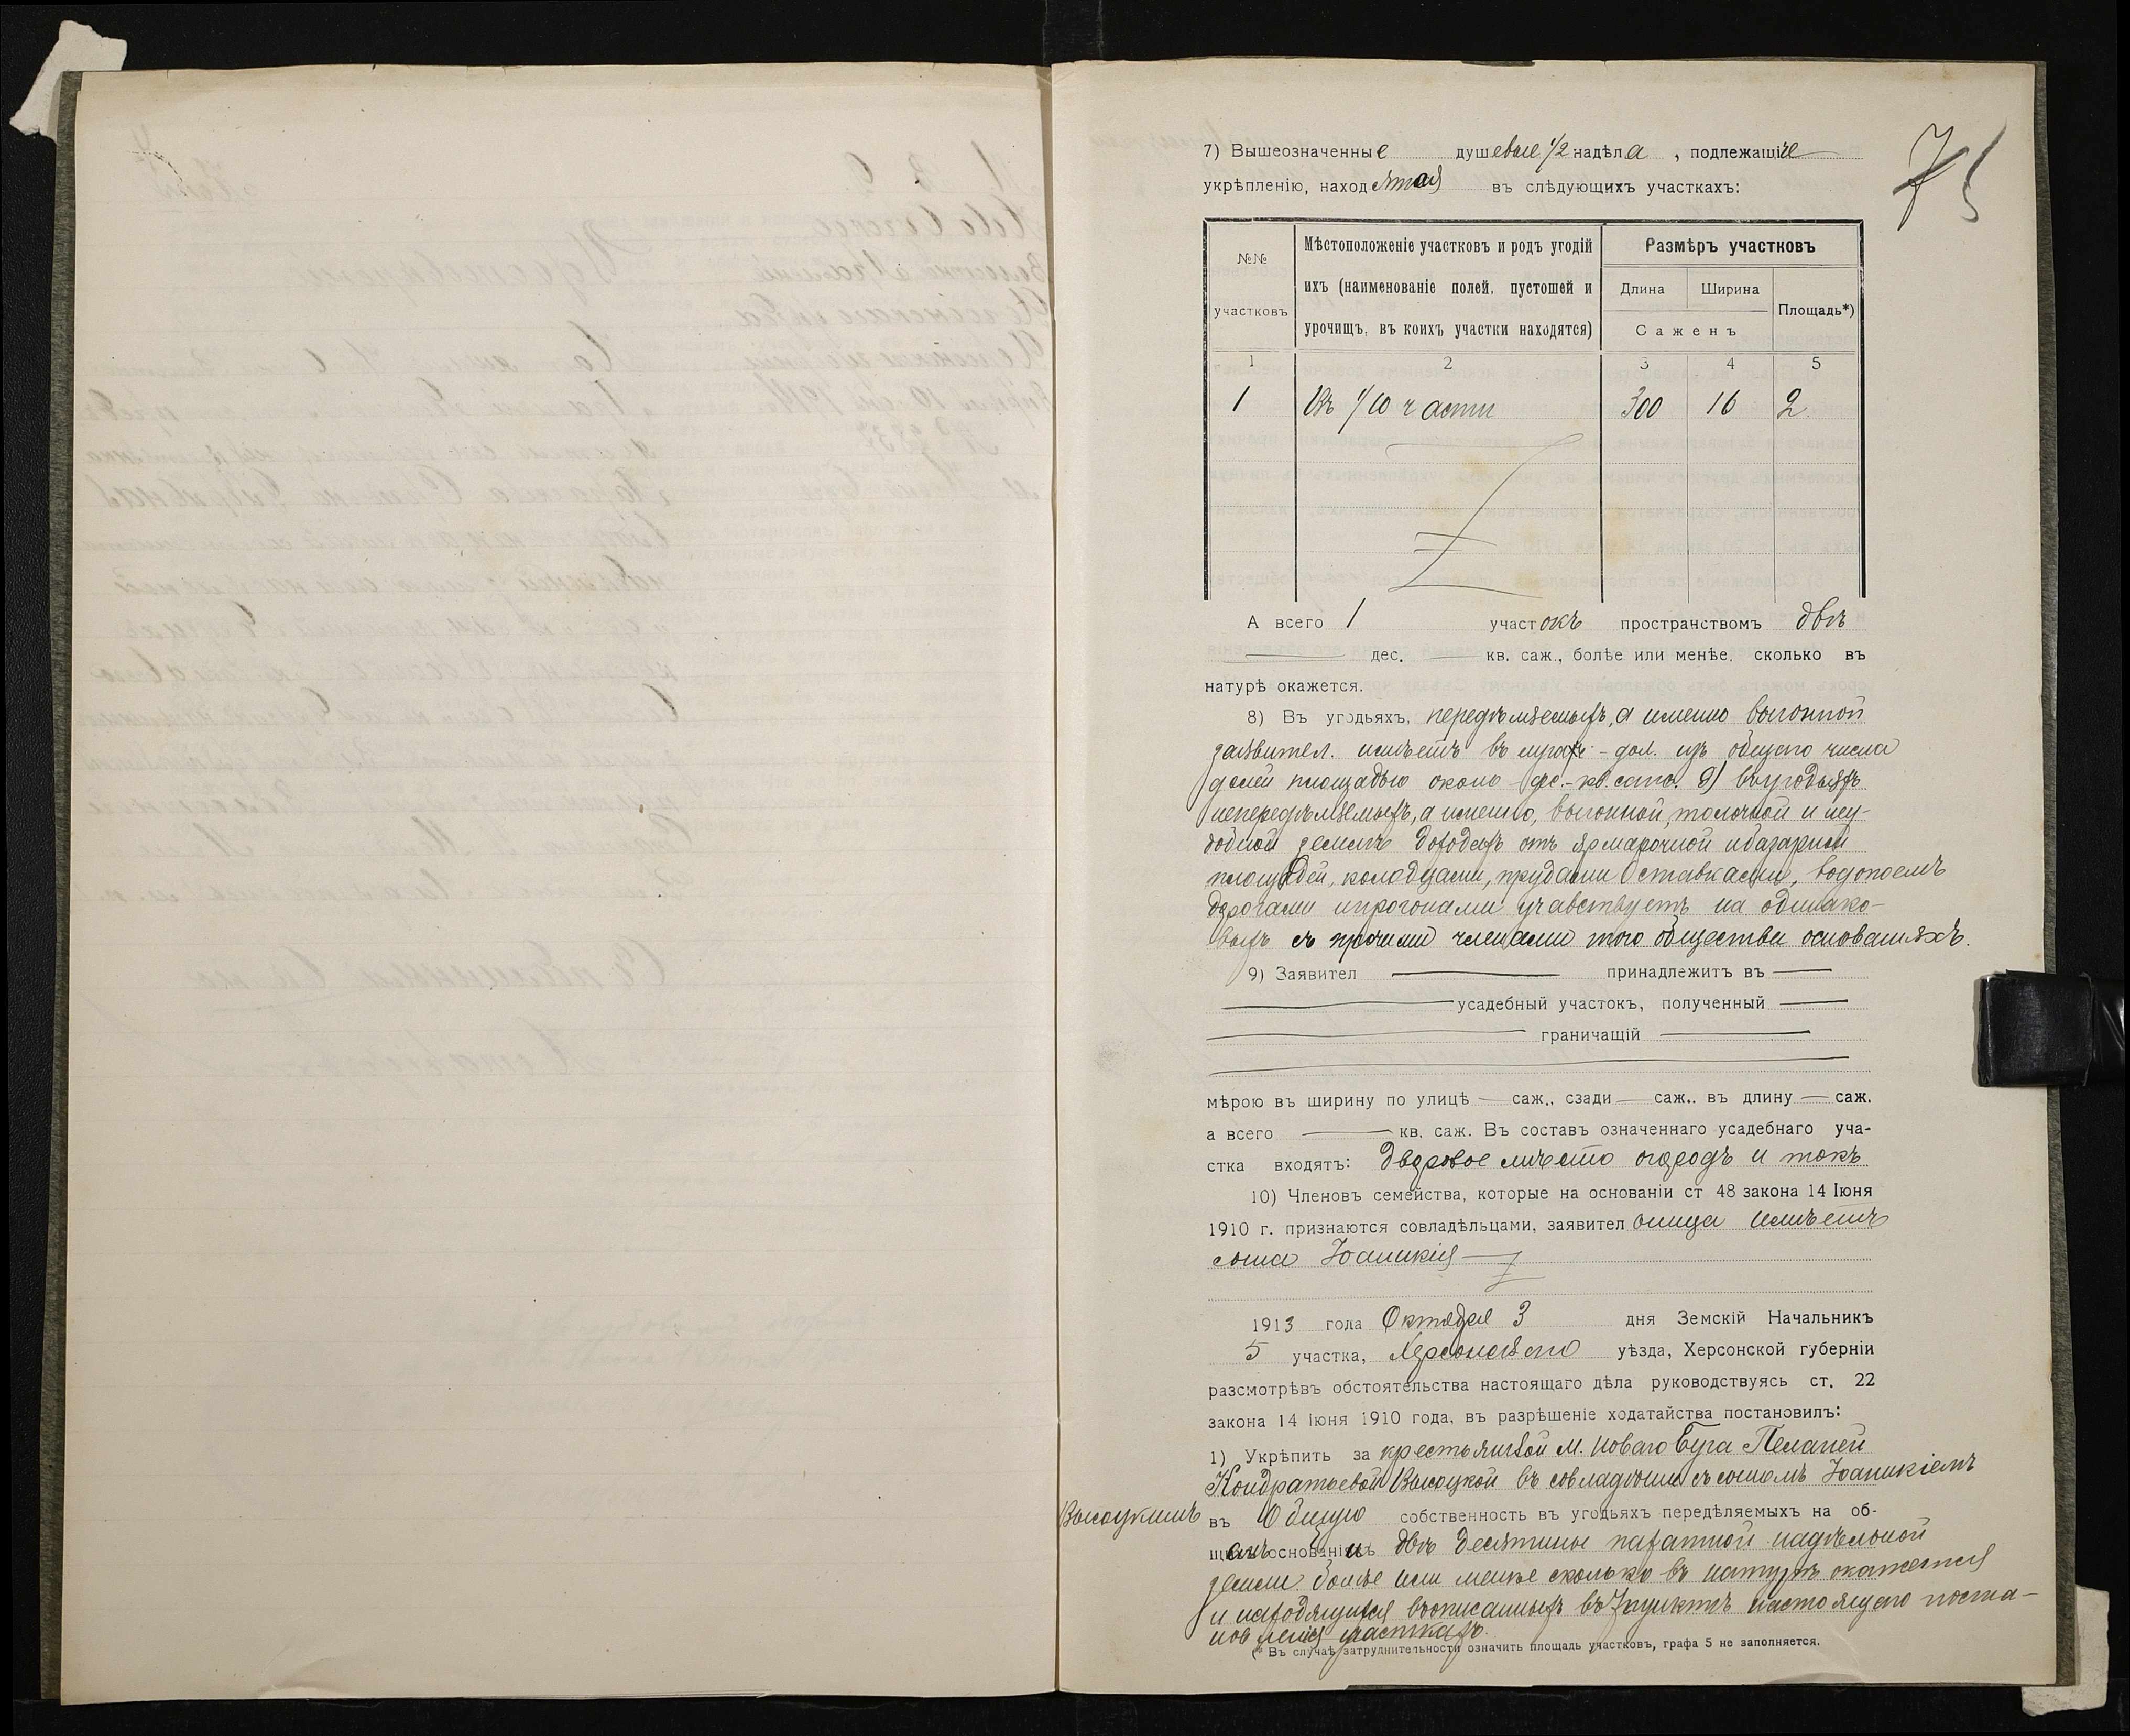 7) Вышеозначенные душевые 1/2 надѣла, подлежащіе
75
укрѣпленію, находятся въ слѣдующихъ участкахъ:
№№ участковъ
Мѣстоположеніе участковъ и родъ угодій
ихъ (наименованіе полей, пустошей и
урочищъ, въ коихъ участки находятся)
Размѣръ участковъ
Длина Ширина Площадь*)
Сажень
1 2 3 4 5
1 Въ 1/10 части 300 16 2
А всего 1 участокъ пространствомъ двѣ
дес. кв. саж., болѣе или менѣе, сколько въ
натурѣ окажется.
8) Въ угодьяхъ, передѣляемыхъ, а именно выгонной
заявител. имѣетъ въ - дол. изъ общего числа
долей площадью около - дес. - кв. саж. 9) въ угодьяхъ
непередѣляемыхъ, а именно, выгонной, толочной и неу-
добной земли доходахъ отъ ярмарочной и базарной
площадей, колодцами, прудами ставками, водопоемъ
дорогами и прогонами учавствуетъ на одинако-
выхъ съ прочими членами того общества основаніяхъ.
9) Заявител принадлежитъ въ
усадебный участокъ, полученный
граничащій
мѣрою въ ширину по улицѣ — саж., сзади — саж., въ длину — саж.
а всего — кв. саж. Въ составъ означеннаго усадебнаго уча-
стка входятъ: дворовое мѣсто огородъ и токъ
10) Членовъ семейства, которые на основаніи ст 48 закона 14 Іюня
1910 г. признаются совладѣльцами, заявительница имѣетъ
сына Іоаникія
1913 года Октября 3 дня Земскій Начальникъ
5 участка, Херсонскаго уѣзда, Херсонской губерніи
разсмотрѣвъ обстоятельства настоящаго дѣла руководствуясь ст. 22
закона 14 Іюня 1910 года, въ разрѣшеніе ходатайства постановилъ:
1) Укрѣпить за крестьянкой м. Новаго Буга Пелагеей
Кондратьевой Высоцкой въ совладѣніи съ сыномъ Іоаникіемъ
Высоцкимъ въ общую собственность въ угодьяхъ передѣляемыхъ на об-
щемъ основаніи двѣ десятины пахатной надѣльной
земли болѣе или менѣе сколько въ натурѣ окажется
и находящихся въ описанныхъ въ 7 пунктѣ настоящего поста-
новленія участкахъ.
(* Въ случаѣ затруднительности означить площадь участковъ, графа 5 не заполняется.